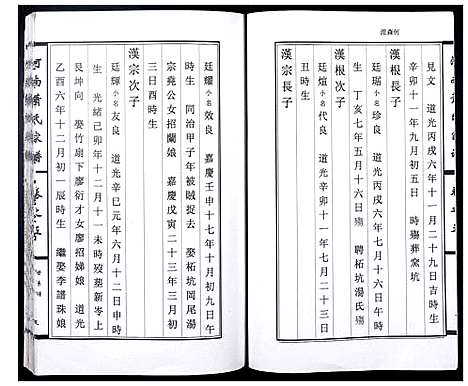 何森源
見文 道光丙戌六年十一月二十九日吉時生
辛卯十一年九月初五日 時殤葬窯坑
廷瑞小名珍良 道光丙戌六年十一月十二日辰時
生 丁亥七年五月十六日殤 聘柘坑湯氏
漢根次子
廷煊小名代良 道光辛卯十一年二月十二日
丑時生
漢宗長子
廷耀小名效良 嘉慶壬申十七年十月初九日午
時生 同治甲子年被賊捉去 娶柘坑岡尾湯
宗堯公女招蘭娘 嘉慶戊寅二十三年三月初
三日酉時生
漢宗次子
廷輝小名友良 道光辛巳元年六月十二日申時
生 光緒己卯年十二月十一未時歿墓新岑上
艮坤向 娶竹扇下廖衍才女廖招娣娘 道光
乙酉六年十二月初一辰時生 繼娶李譜珠娘
河南蕭氏家譜 卷之五